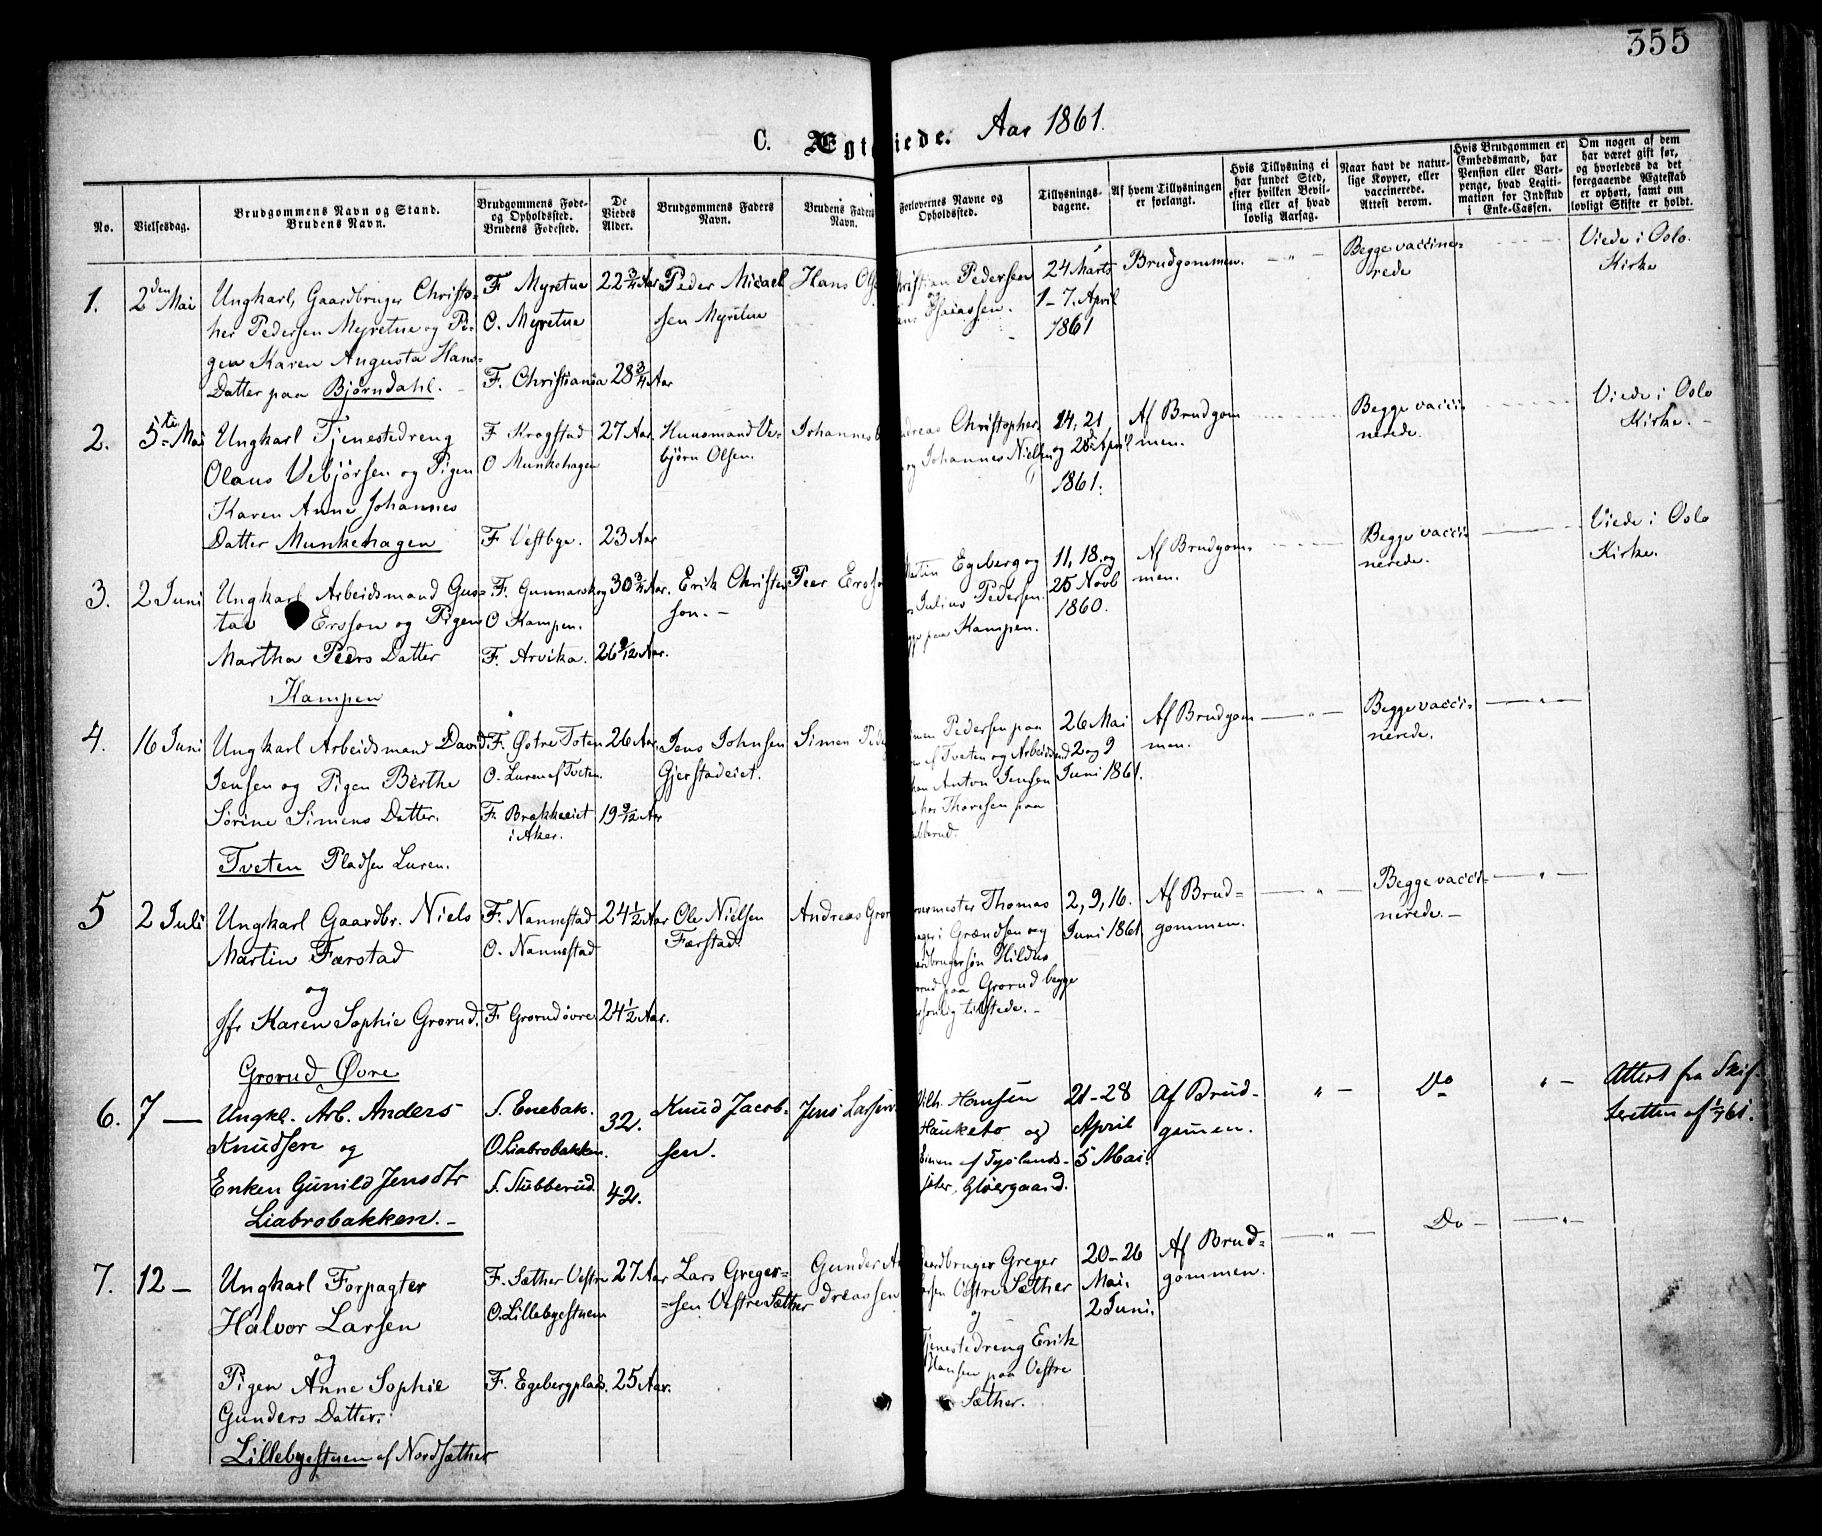 355
C. Ægt iede. Aar 1861.
No.
Vielsesdag.
Brudgommens Navn og Stand.
Brudens Navn.
Brudgommens Føde-
og Opholdssted.
Brudens Fødested.
De
Viedes
Alder.
Brudgommens Faders
Navn.
Brudens Faders
Navn.
Forlovernes Navne og
Opholdssted.
Tillysnings-
dagene.
Af hvem Tillysningen
er forlangt.
Hvis Tillysning ei
har fundet Sted,
efter hvilken Bevil-
ling eller af hvad
lovlig Aarsag.
Naar havt de natur-
lige Kopper, eller
vaccinerede.
Attest derom.
Hvis Brudgommen er
Embedsmand, har
Pension eller Vart-
penge, hvad Legiti-
mation for Indskud
i Enke-Cassen.
Om nogen af dem
har været gift før,
og hvorledes da det
foregaaende Ægteskab
er ophørt, samt om
lovligt Skifte er holdt.
1.
2den Mai
Ungkarl, Gaardbruger Christo-
her Pedersen Myretue og Pi-
gen Karen Augusta Hans-
Datter paa Bjørndahl.
F. Myretue
O. Myretue
F. Christiania
22 3/4 Aar
28 3/4 Aar
Peder Micael
sen Myretue
Hans Ols
hristian Pedersen
Esaiassen.
24 Marts
1-7. April
1861
Brudgommen.
Begge vaccine-
rede
Viede i Oslo.
Kirke
2.
5te Mai
Ungkarl Tjenestedreng
Olaus Vebjørsen og Pigen
Karen Anne Johannes
Datter Munkehagen
F Krogstad
O Munkehagen
F. Vestbye.
27 Aar.
23 Aar
Huusmand Ve-
bjørn Olsen.
Johannes
dreas Christopher
og Johannes Niels
14, 21
og 28de April
1861.
Af Brudgom
men.
Begge vacci-
nerede.
Viede i Oslo
Kirke. -
3.
2 Juni
Ungkarl Arbeidsmand Gus-
tav Ersson og Pigen
Martha Peers Datter
Kampen
F. Gunnarskog
O Kampen.
F. Arvika.
30 3/4 Aar.
26 9/12 Aar.
Erik Christen
son. -
Peer Ersso
artin Egeberg og
Julius Pedersen
paa Kampen.
11, 18. og
25 Novb
1860.
Af Brudgom-
men.
Begge vacci-
nerede.
Viede i Oslo
Kirke.
4.
16 Juni
Ungkarl Arbeidsmand David
Jensen og Pigen Berthe
Sørine Simens Datter.
Tveten Pladsen Luren.
F. Østre Toten
O. Luren af Tveten.
F. Brakkeeiet
i Aker.
26 Aar.
19 9/12 Aar
Jens Johnsen
Gjerstadeiet.
Simen Ped
men Pedersen paa
af Tveten og Arbeidsmd
han Anton Jensen
Thoresen paa
ubberud.
26 Mai
2 og 9
Juni 1861.
Af Brudgom
men.
Begge vacci-
nerede.
5
2 Juli
Ungkarl Gaardbr. Niels
Martin Færstad
og
Jfr Karen Sophie Grorud.
Grorud Øvre
F. Nannestad
O. Nannestad
F. Grorud øvre
24 1/2 Aar
24 1/2 Aar.
Ole Nielsen
Færstad.
Andreas Gror
vermester Thomas
ager i Grændsen og
ardbrugersøn Hildus
rud paa Grorud begge
ersonlig tilstede. -
2, 9, 16.
Juni 1861
Af Brud-
gommen.
Begge vacci-
nerede. -
6.
7 —
Ungkl. Arb. Anders
Knudsen og
Enken Gunild Jensdtr
Liabrobakken. -
F. Enebak.
O. Liabrobakken.
F. Stubberud.
32.
42.
Knud Jacob-
sen.
Jens Larsen
Vilh. Hansen
Hauketo og
Simen af Tyslands-
sæter, Gløergaard.
21-28
April
5 Mai.
Af Brud-
gommen.
" —
Do
" —
Attest fra Skif-
teretten af 1/7 61.
7.
12 —
Ungkarl Forpagter
Halvor Larsen
og
Pigen Anne Sophie
Gunders Datter.
Lillebyestuen af Nordsæther
F. Sæther Vestre
O. Lillebyestuen
F. Egebergplads.
27 Aar
25 Aar.
Lars Greger-
=sen Vestre Sæther
Gunder A
dreassen
aardbruger Greger
arsen Vestre Sæther
og
Tjenestedreng Erik
Hansen paa Vestre
Sæther.
20-26
Mai.
2 Juni.
Af Brud=
gommen.
— " —
Do -
— " -